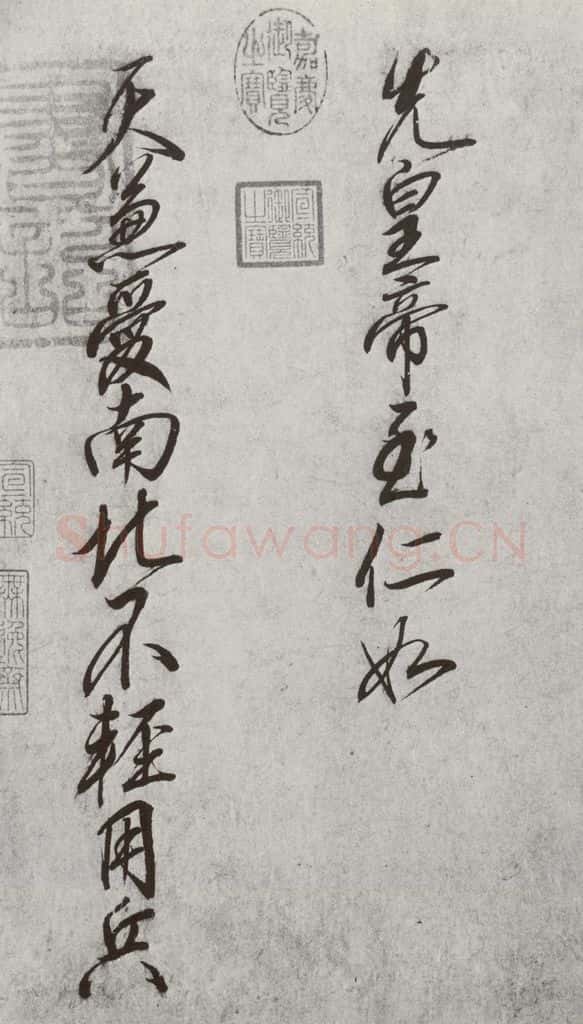 先皇帝至仁如
天兼愛南北不輕用兵
嘉慶御覽之寶
宣統御覽之寶
Shufawang.CN
宣統
無逸齋